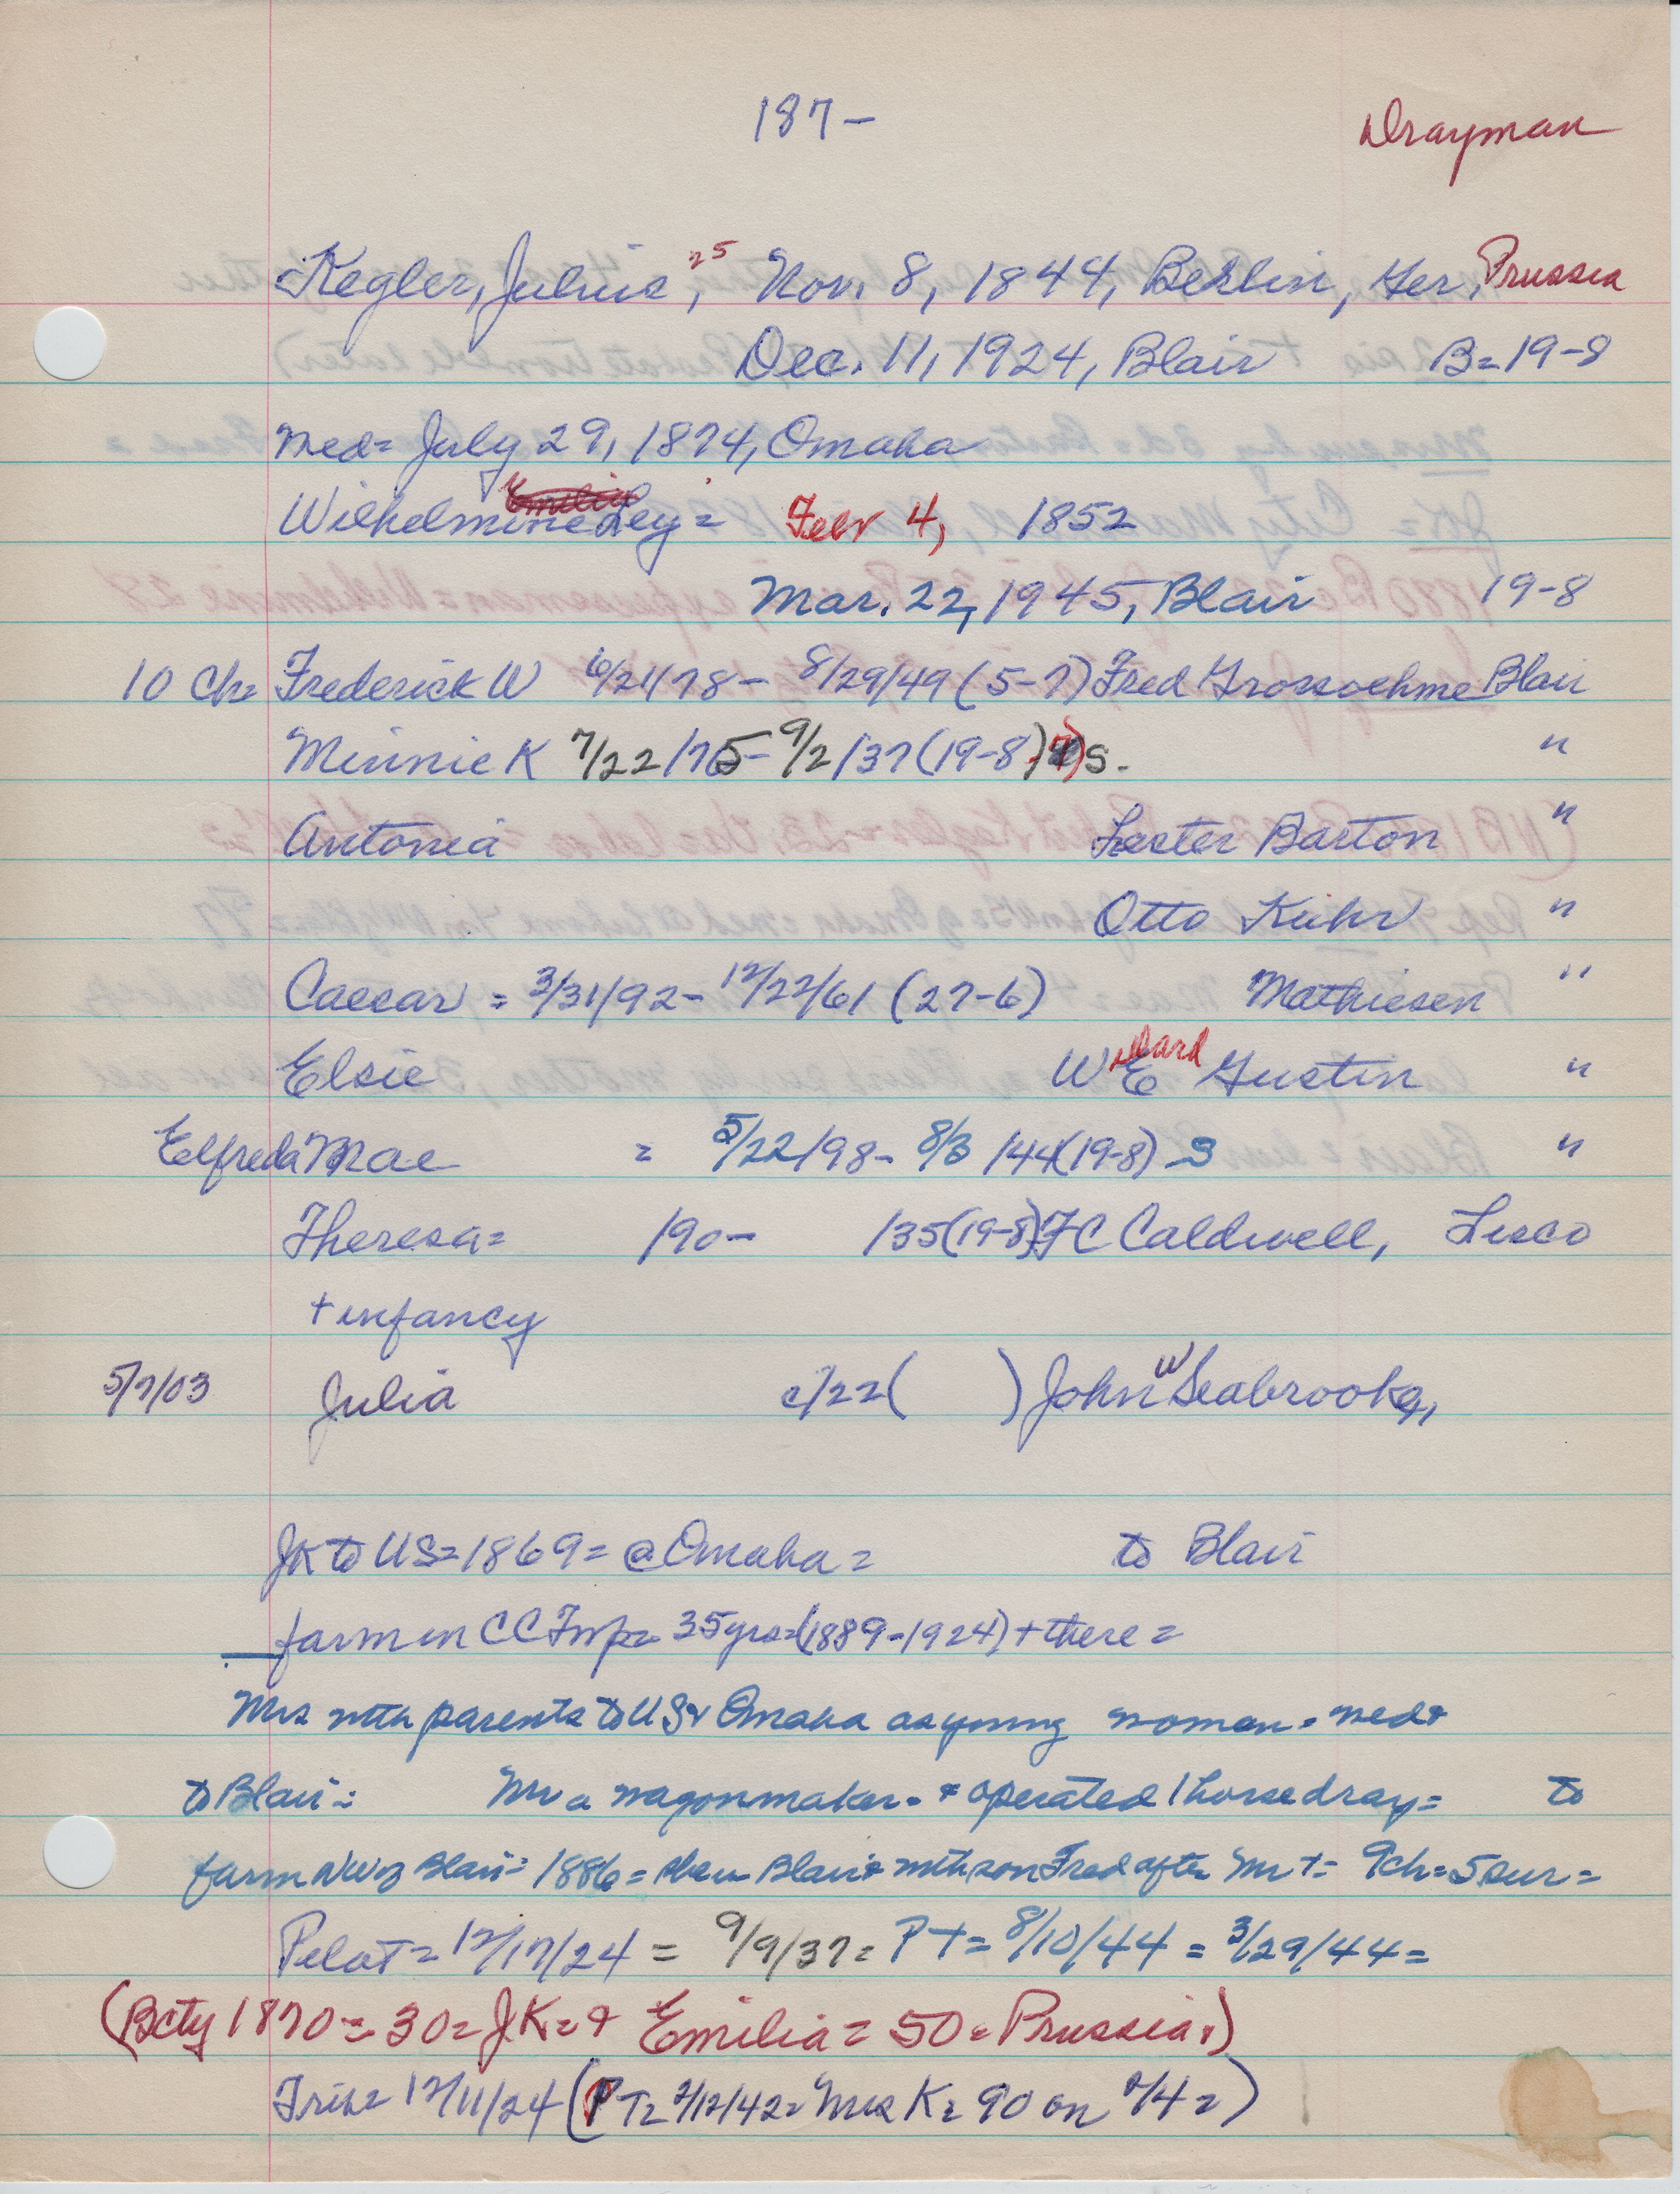 187-
Drayman
Kegler, Julius, 25 Nov. 8, 1844, Berlin, Ger, Prussia
Dec. 11, 1924, Blair B=19-8
Med= July 29, 1874, Omaha
Emilia
Wilhelmine Ley= Febr 4, 1852
Mar. 22, 1945, Blair 19-8
10 Ch= Frederick W 6/21/78- 8/29/49 (5-7) Fred Grossoehme Blair
Minnie K 7/22/75- 9/2/37 (19-8) S- "
Antonia Lester Barton "
Otto Kuhr "
Caesar = 3/31/92- 12/22/61 (27-6) Mathiesen "
Elsie Willard E Gustin "
Elfreda Mae = 5/22/98- 8/3/44 (19-8) S "
Theresa= /90- /35 (19-8) FC Caldwell, Lisco
+ infancy
5/7/03 Julia c/22 ( ) John W Seabrooke,
JK to US=1869= @ Omaha= to Blair
farm in CC Twp= 35 yrs=(1889-1924) + there=
Mrs with parents to US & Omaha as young woman= med &
to Blair= Mr a wagonmaker- & operated 1 horse dray= to
farm NW of Blair= 1886= then Blair & with son Fred after Mr +- 9ch=5 sur=
Pilot= 12/17/24 = 9/9/37= PT= 8/10/44 = 3/29/44=
(Bcty 1870= 30= JK= & Emilia= 50= Prussia.)
Trib= 12/11/24 (PT= 2/12/42= Mrs K= 90 on 2/4=)